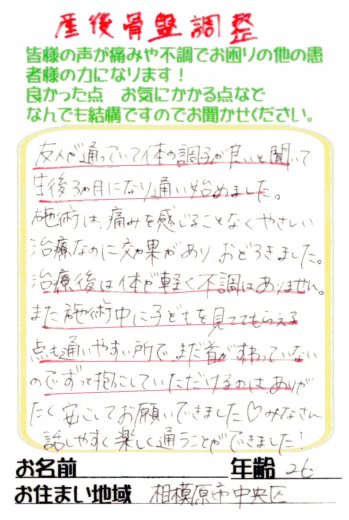 産後骨盤調整
皆様の声が痛みや不調でお困りの他の患
者様の力になります！
良かった点　お気にかかる点など
なんでも結構ですのでお聞かせください。
友人が通っていて体の調子が良いと聞いて
生後3ヶ月になり通い始めました。
施術は、痛みを感じることなくやさしい
治療なのに効果がありおどろきました。
治療後は体が軽く不調はありません。
また施術中に子どもを見ててもらえる
点も通いやすい所で、まだ首がすわっていない
のでずっと抱っこしていただけるのはありが
たく安心してお願いできました♡みなさん
話しやすく楽しく通うことができました！
お名前　年齢 26
お住まい地域　相模原市中央区